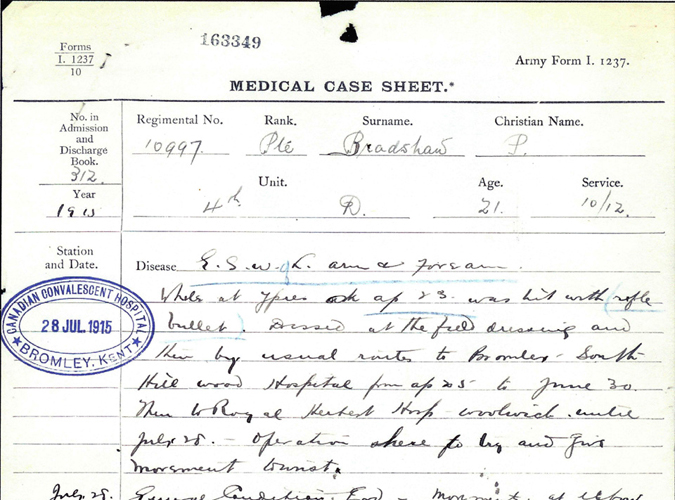 Forms
I. 1237
10
163349
Army Form I. 1237.
MEDICAL CASE SHEET.*
No. in Admission and Discharge Book.
312
Year
1915
Regimental No.
Rank.
Surname.
Christian Name.
10997.
Pte
Bradshaw
P.
Unit.
Age.
Service.
4th
D.
21.
10/12.
Station and Date.
Disease G.S.W. of L. arm & forearm.
CANADIAN CONVALESCENT HOSPITAL
28 JUL. 1915
BROMLEY, KENT
While at Ypres on ap 23. was hit with rifle
bullet. Dressed at the field dressing and
then by usual routes to Bromley - South
Hill wood Hospital from ap 25 to June 30.
Then to Royal Herbert Hosp - woolwich until
July 28. - Operation there to try and give
movement to wrist.
July 28. General Condition. Good -